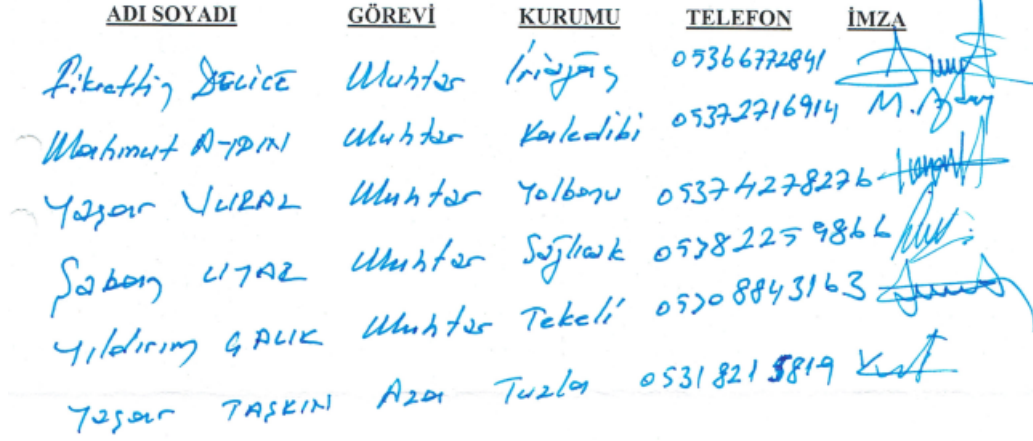 ADI SOYADI GÖREVİ KURUMU TELEFON İMZA
Fikrettin DELİCE Muhtar 05366772841
Mahmut AYDIN Muhtar Kaledibi 05372716914
Yaşar VURAL Muhtar Yolboyu 05374278276
Şaban UYAR Muhtar Sağlıcak 05382259866
Yıldırım ÇALIK Muhtar Tekeli 05308843163
Yaşar TAŞKIN Aza Tuzla 0531 821 5819